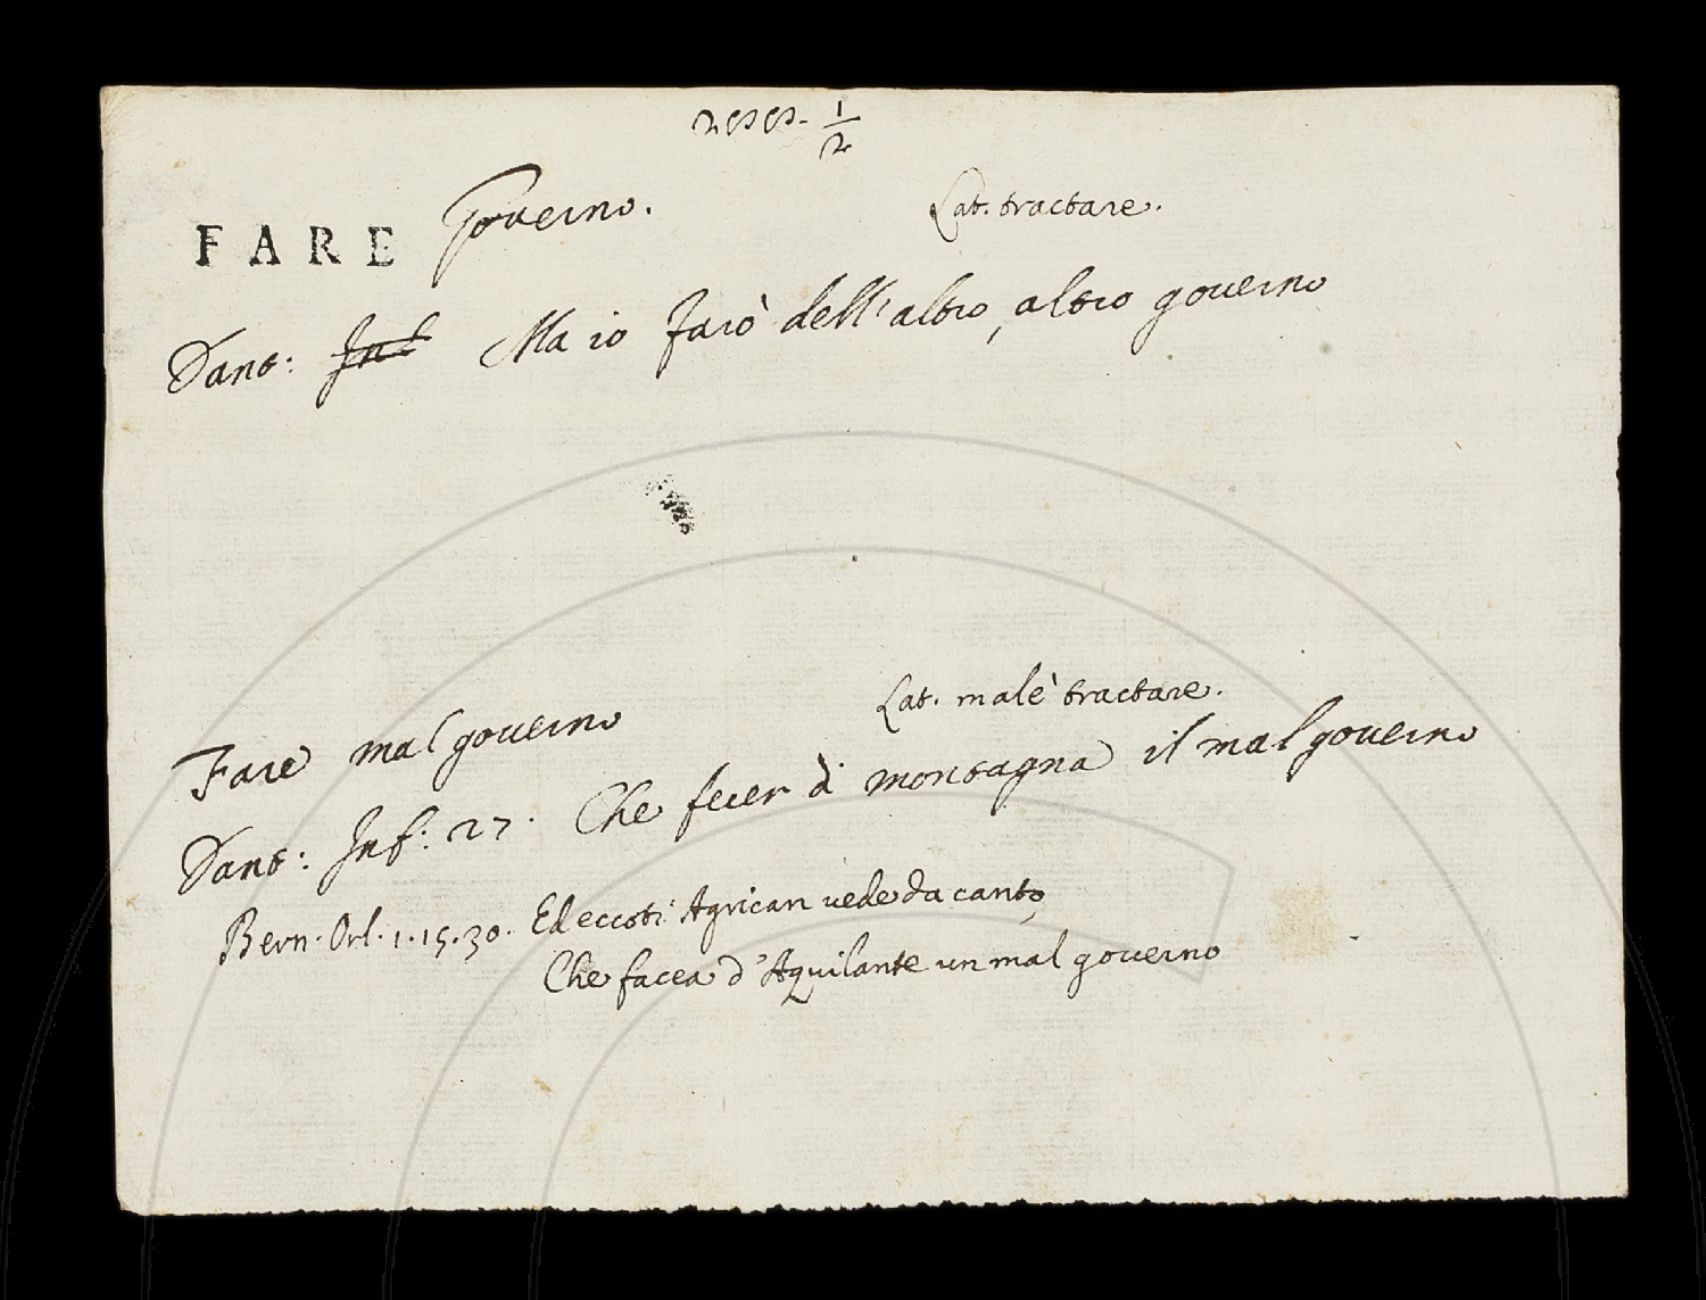 2599. 1/2
FARE Governo. Lat. tractare.
Dant: Inf Ma io farò dell'altro, altro governo
Fare mal governo Lat. malè tractare.
Dant: Inf: 27. Che fecer di montagna il mal governo
Bern. Orl. 1.15.30. Ed eccoti Agrican vede da canto,
Che facea d'Aquilante un mal governo